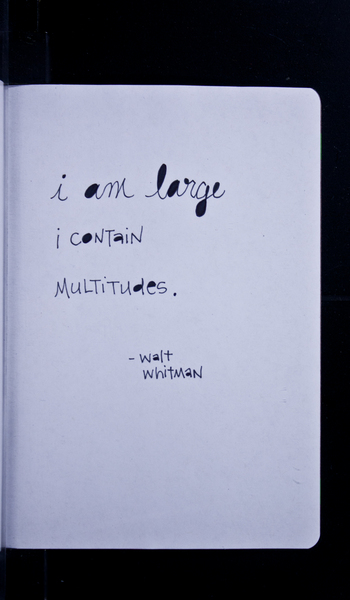 i am large
i CONTaiN
MULTiTUdes.
- walt
whitMaN